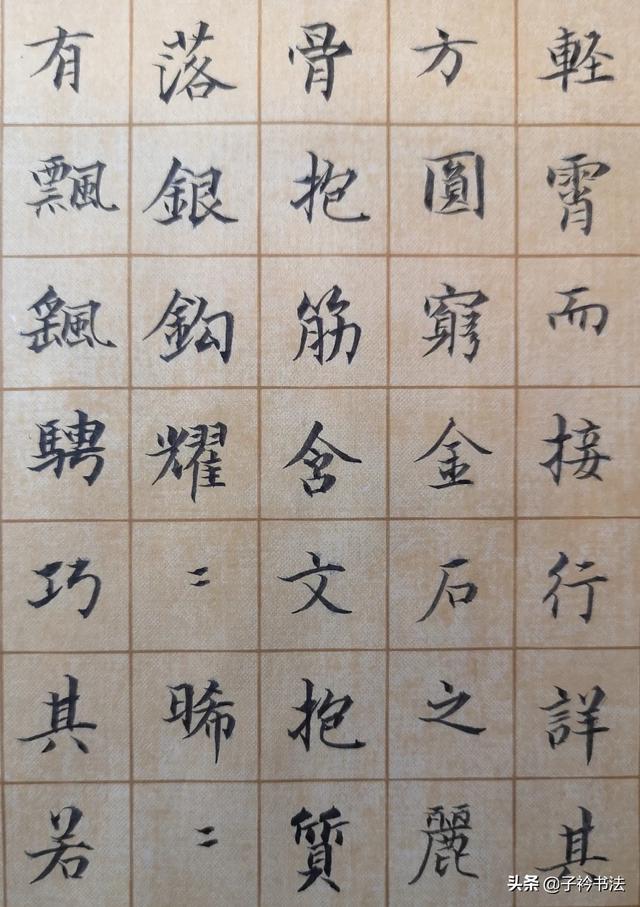 軽霄而接行詳其
方圓窮金石之麗
骨抱筋含文抱質
落銀鈎耀〻晞〻
有飄颻騁巧其若
头条 @子衿书法